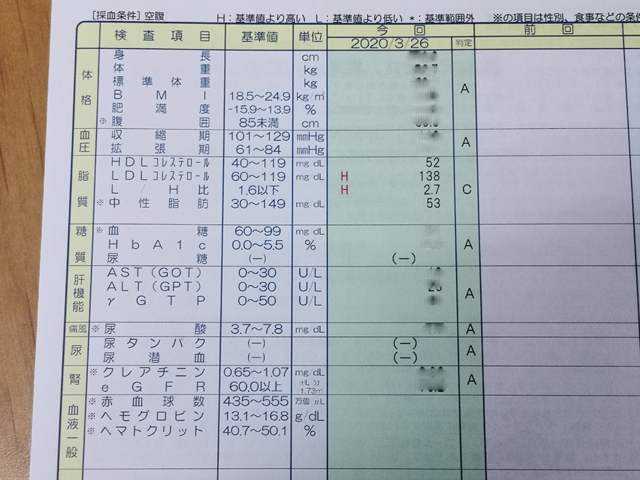 [採血条件] 空腹 H：基準値より高い L：基準値より低い *：基準範囲外 ※の項目は性別、食事などの条件
検査項目 基準値 単位 今回 前回
2020/3/26 判定
体格 A
身長 cm
体重 kg
標準体重 kg
BMI 18.5～24.9 kg/㎡
肥満度 -15.9～13.9 %
※腹囲 85未満 cm
血圧 A
収縮期 101～129 mmHg
拡張期 61～84 mmHg
脂質 C
HDLコレステロール 40～119 mg dL 52
LDLコレステロール 60～119 mg dL H 138
L／H比 1.6以下 H 2.7
※中性脂肪 30～149 mg dL 53
糖質 A
※血糖 60～99 mg dL
HbA1c 0.0～5.5 %
尿糖 (－) (－)
肝機能 A
AST(GOT) 0～30 U/L
ALT(GPT) 0～30 U/L
γGTP 0～50 U/L
痛風 ※尿酸 3.7～7.8 mg dL A
尿 A
尿タンパク (－) (－)
尿潜血 (－) (－)
腎 A
※クレアチニン 0.65～1.07 mg dL
eGFR 60.0以上 mL 分 1.73㎡
血液一般
※赤血球数 435～555 万個 μL
※ヘモグロビン 13.1～16.8 g/dL
※ヘマトクリット 40.7～50.1 %